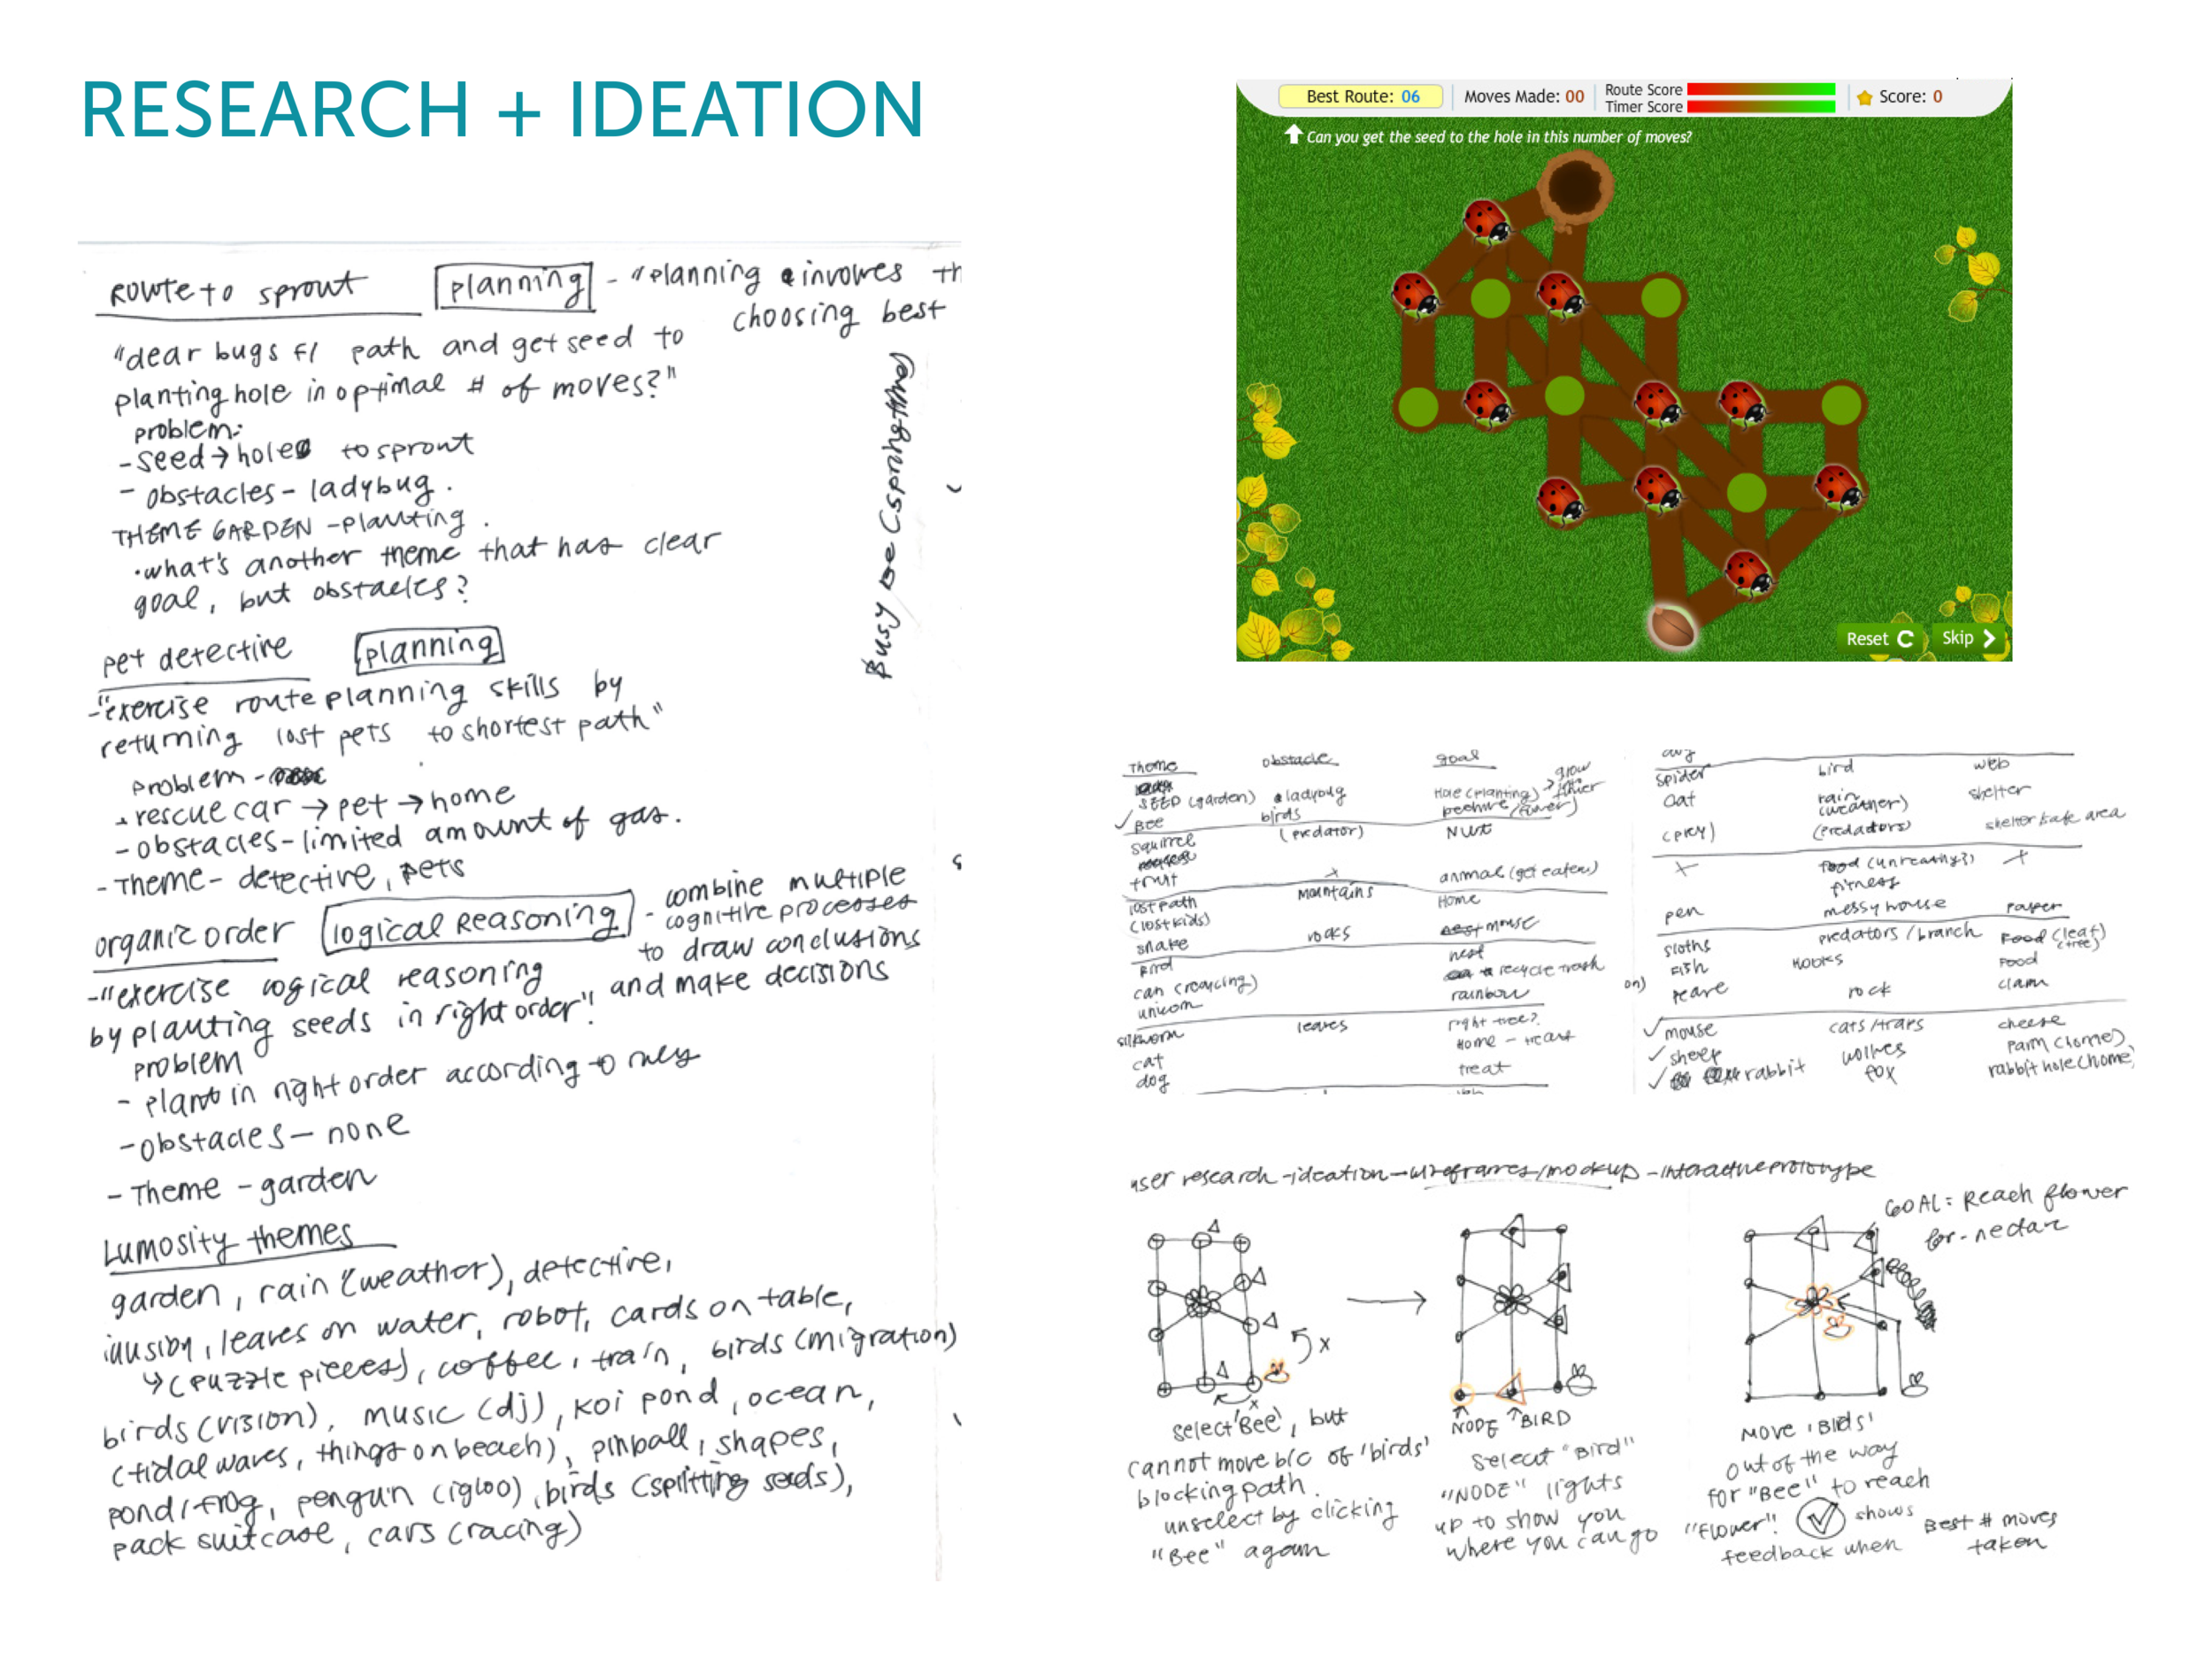 RESEARCH + IDEATION
Route to sprout
planning
- "planning involves th
choosing best
"clear bugs f/ path and get seed to
planting hole in optimal # of moves?"
problem:
- seed → hole to sprout
- obstacles - ladybug.
THEME GARDEN - planting.
• what's another theme that has clear
goal, but obstacles?
Busy Bee (spring
pet detective
planning
- "exercise route planning skills by
returning lost pets to shortest path"
problem -
- rescue car → pet → home
- obstacles - limited amount of gas.
- Theme - detective, pets
organic order
logical reasoning
- combine multiple
cognitive processes
to draw conclusions
and make decisions
- "exercise logical reasoning
by planting seeds in right order"
problem
- plant in right order according to
- obstacles - none
- Theme - garden
Lumosity themes
garden, rain (weather), detective,
illusion, leaves on water, robot, cards on table,
↳ (puzzle pieces), coffee, train, birds (migration)
birds (vision), music (dj), koi pond, ocean,
(tidal waves, things on beach), pinball, shapes,
pond/frog, penguin (igloo), birds (splitting seeds),
pack suitcase, cars (racing)
Best Route: 06
Moves Made: 00
Route Score
Timer Score
Score: 0
Can you get the seed to the hole in this number of moves?
Reset
Skip
Theme obstacle goal
SEED (garden) ladybug Hole (planting) → grow into flower
✓ Bee birds beehive (flower)
squirrel (predator) Nut
fruit x animal (get eaten)
lost path (lost kids) Mountains Home
snake rocks mouse
Bird nest
can (recycling) recycle trash
unicorn rainbow
silkworm leaves right tree?
cat Home - treat
dog treat
spider bird web
cat rain (weather) shelter
(prey) (predators) shelter safe area
x food (unhealthy?) x
fitness
pen messy house paper
sloths predators / branch Food (leaf) (tree)
fish hooks food
rock clam
✓ mouse cats/traps cheese
✓ sheep wolves farm (home)
✓ rabbit fox rabbit hole (home)
user research - ideation - wireframes/mockup - interactive prototype
select 'Bee', but
cannot move b/c of 'birds'
blocking path.
unselect by clicking
"Bee" again
NODE BIRD
select "Bird"
"NODE" lights
up to show you
where you can go
GOAL: Reach flower
for nectar
Move 'Birds'
out of the way
for "Bee" to reach
"flower"! ✓ shows
feedback when
Best # moves
taken